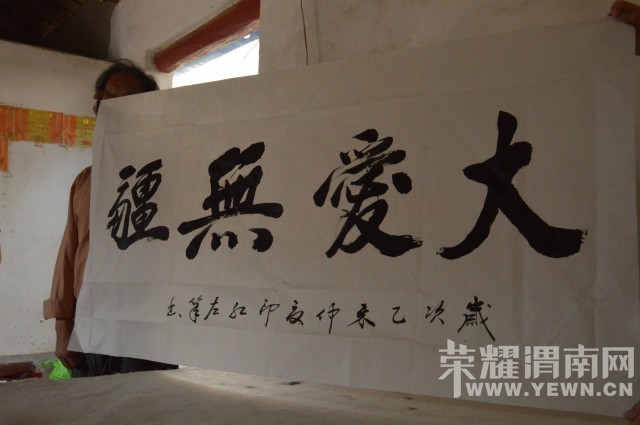 大愛無疆
歲次乙未仲夏印紅左筆書
荣耀渭南网
WWW.YEWN.CN